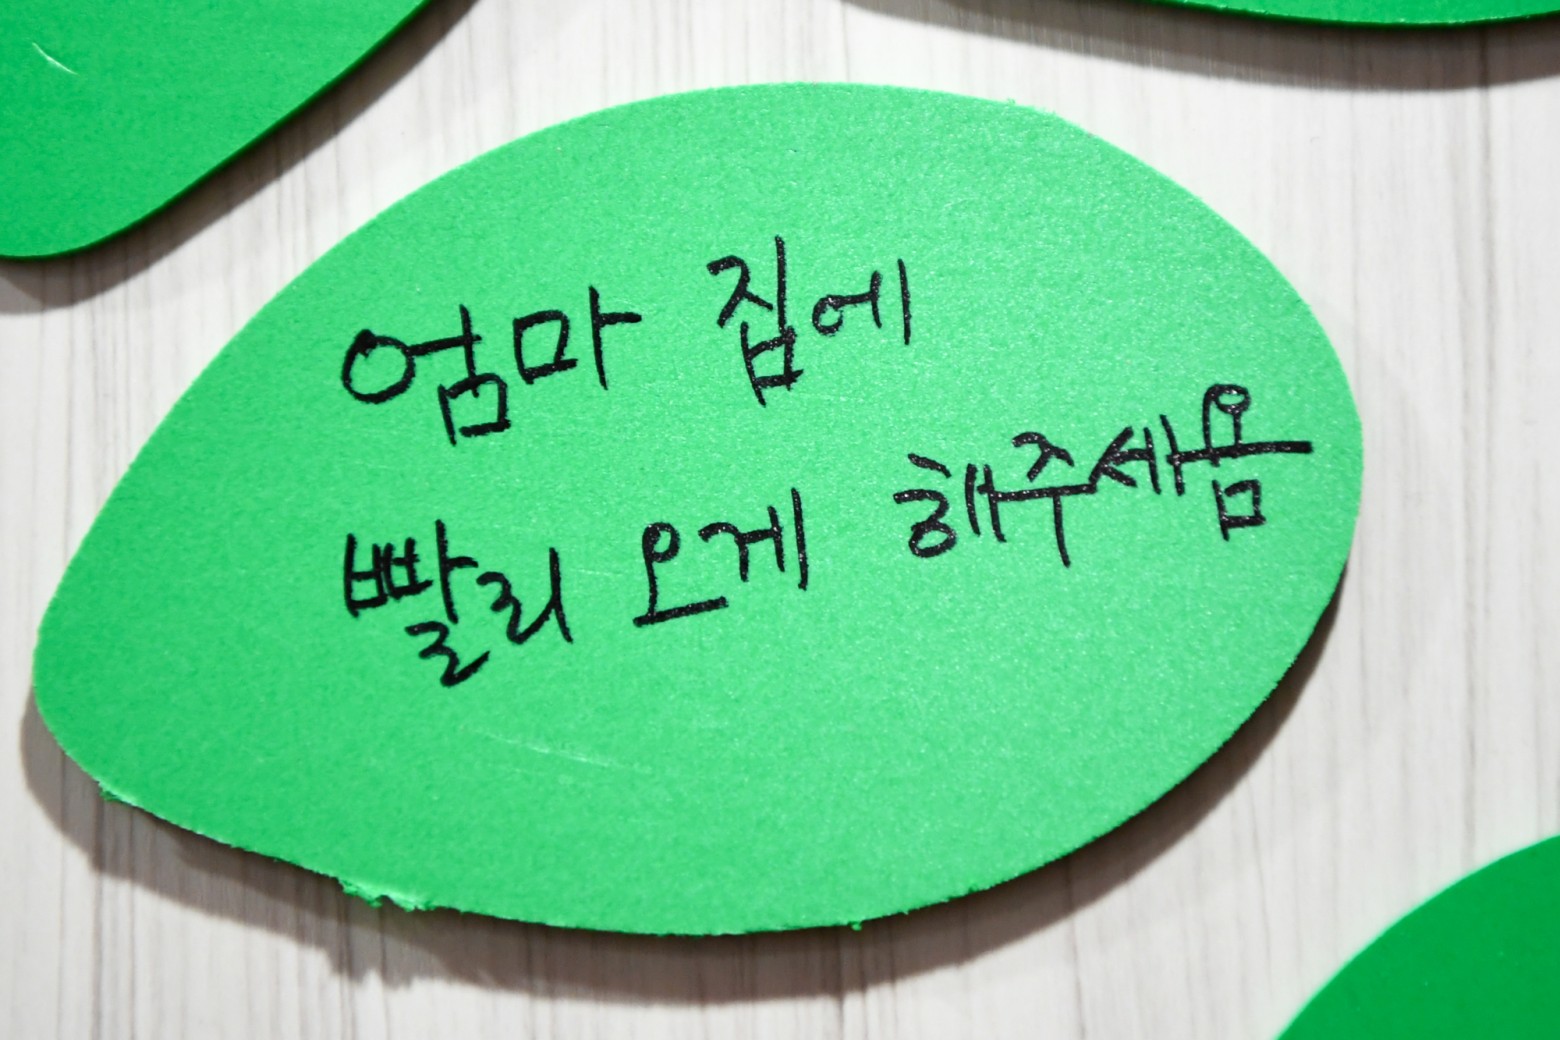 엄마 집에
빨리 오게 해주세욤